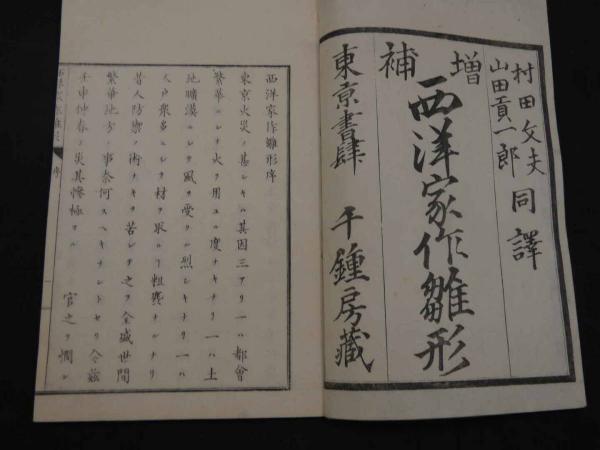 村田文夫
山田貢一郎
同譯
増補
西洋家作雛形
東京書肆 千鍾房藏
西洋家作雛形序
東京火災ノ甚シキハ其因三アリ一ハ都會
繁華ニシテ火ヲ用ユル度ナキナリ一ハ土
地曠漠ニシテ風ヲ受ル烈シキナリ一ハ
人戸衆多ニシテ材ヲ取ル粗糲ナルナリ
昔人防禦ノ術ナキヲ苦シテ之ヲ全盛世間
繁華地方ノ事奈何スヘキナシトセリ今茲
壬申仲春ノ災其慘極ル 官之ヲ憫レ
序